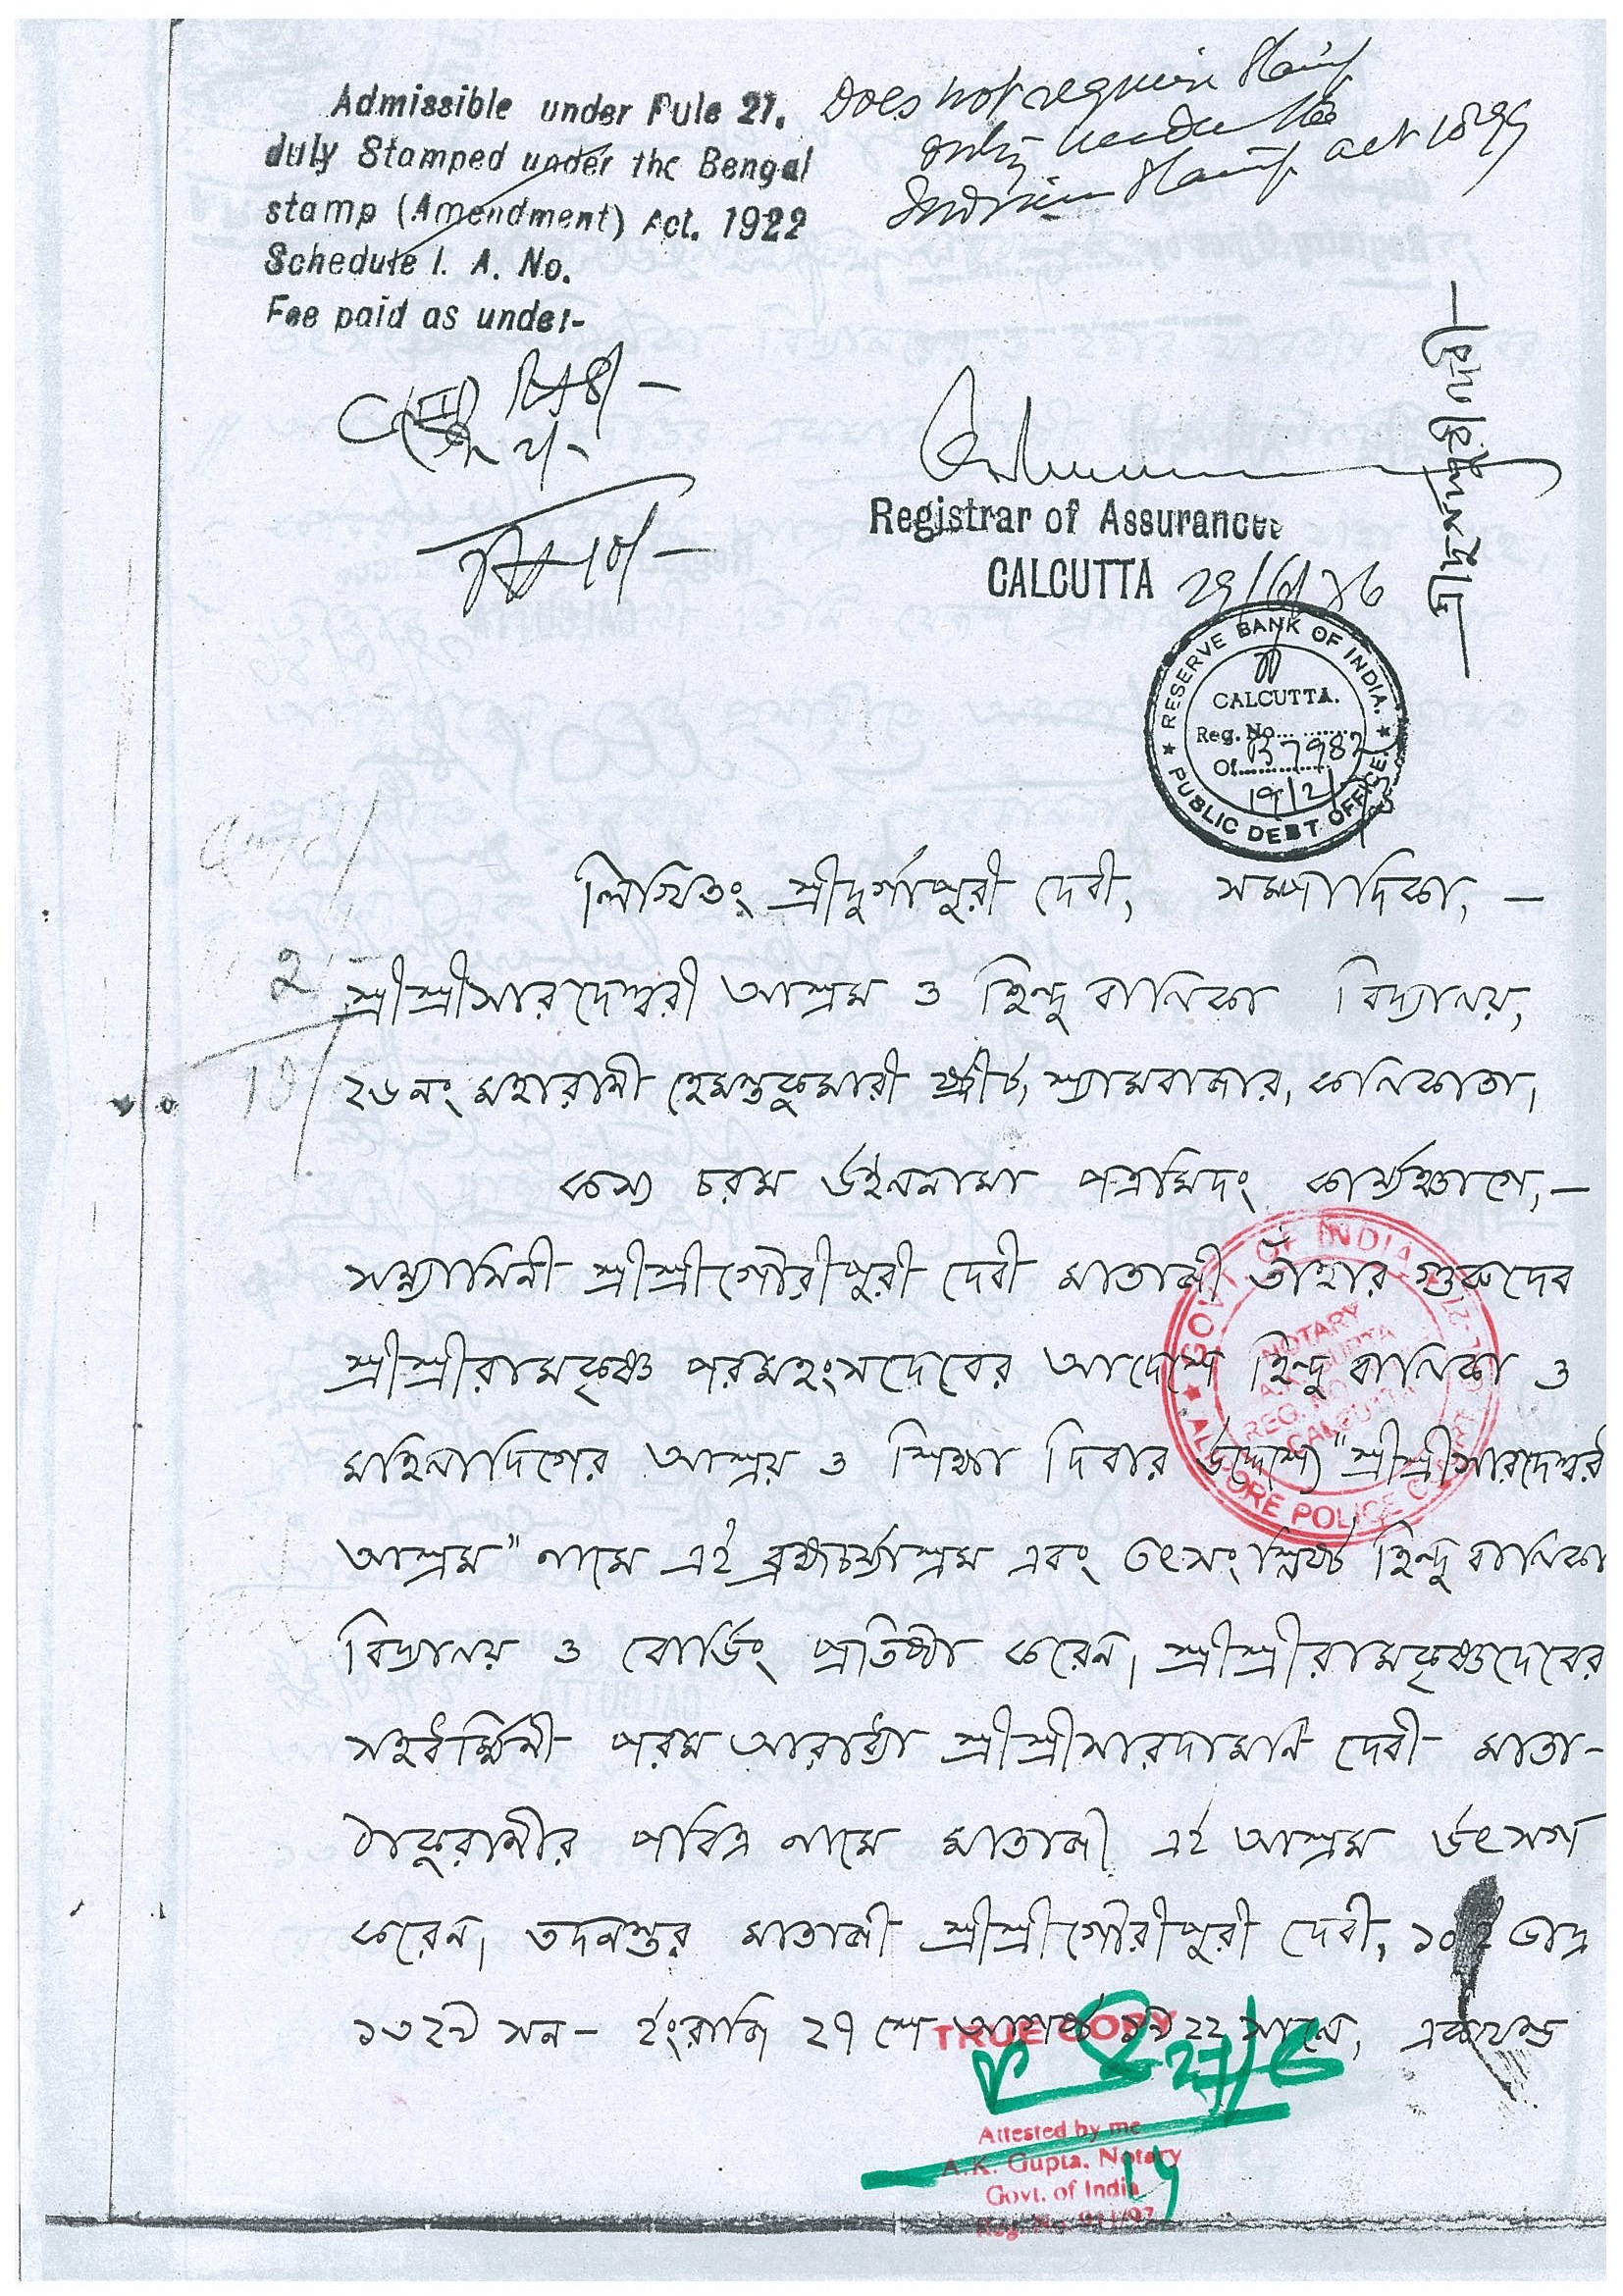 Admissible under Rule 21.
duly Stamped under the Bengal
stamp (Amendment) Act. 1922
Schedule I. A. No.
Fee paid as under-
Does not require Stamp
only under the
Indian Stamp act 1899
Registrar of Assurances
CALCUTTA 29/6/46
শ্রীদুর্গাপুরী দেবী
RESERVE BANK OF INDIA.
CALCUTTA.
Reg. No.
Of
PUBLIC DEBT OFFICE.
লিখিতং শ্রীদুর্গাপুরী দেবী, সম্পাদিকা, —
শ্রীশ্রীসারদেশ্বরী আশ্রম ও হিন্দু বালিকা বিদ্যালয়,
২৬নং মহারাণী হেমন্তকুমারী ষ্ট্রীট, শ্যামবাজার, কলিকাতা।
কস্য চরম উইলনামা পত্রমিদং কার্য্যঞ্চাগে,—
সন্ন্যাসিনী শ্রীশ্রীগৌরীপুরী দেবী মাতাজী তাঁহার গুরুদেব
শ্রীশ্রীরামকৃষ্ণ পরমহংসদেবের আদেশে হিন্দু বালিকা ও
মহিলাদিগের আশ্রয় ও শিক্ষা দিবার উদ্দেশ্যে "শ্রীশ্রীসারদেশ্বরী
আশ্রম" নামে এই ব্রহ্মচর্য্যাশ্রম এবং তৎসংশ্লিষ্ট হিন্দু বালিকা
বিদ্যালয় ও বোর্ডিং প্রতিষ্ঠা করেন। শ্রীশ্রীরামকৃষ্ণদেবের
সহধর্ম্মিণী পরম আরাধ্যা শ্রীশ্রীসারদামণি দেবী মাতা-
ঠাকুরাণীর পবিত্র নামে মাতাজী এই আশ্রম উৎসর্গ
করেন। তদনন্তর মাতাজী শ্রীশ্রীগৌরীপুরী দেবী, ১০ই ভাদ্র
১৩২৯ সন - ইংরাজি ২৭ শে আগষ্ট ১৯২২ সালে, একখণ্ড
GOVT. OF INDIA
NOTARY
REG. NO.
CALCUTTA
ALIPORE POLICE COURT
TRUE COPY
27/6
Attested by me
A.K. Gupta, Notary
Govt. of India
Reg. No. 911/97